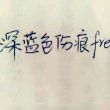 深蓝色伤痕fre